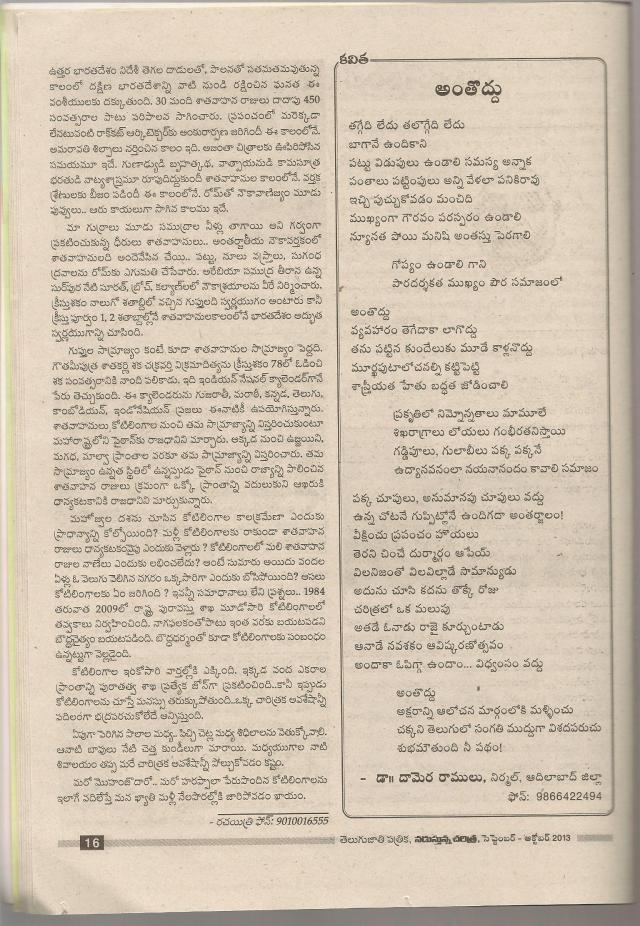 ఉత్తర భారతదేశం విదేశీ తెగల దాడులతో, పాలనతో సతమతమవుతున్న
కాలంలో దక్షిణ భారతదేశాన్ని వాటి నుండి రక్షించిన ఘనత ఈ
వంశీయులకు దక్కుతుంది. 30 మంది శాతవాహన రాజులు దాదాపు 450
సంవత్సరాల పాటు పరిపాలన సాగించారు. ప్రపంచంలో మరెక్కడా
లేనటువంటి రాక్‌కట్ ఆర్కిటెక్చర్‌కు అంకురార్పణ జరిగిందీ ఈ కాలంలోనే.
అమరావతి శిల్పాలు నర్తించిన కాలం ఇది. అజంతా చిత్రాలకు ఊపిరిపోసిన
సమయమూ ఇదే. గుణాఢ్యుడి బృహత్కథ, వాత్సాయనుడి కామసూత్ర
భరతుడి నాట్యశాస్త్రమూ రూపుదిద్దుకుందీ శాతవాహనుల కాలంలోనే. వర్తక
శ్రేణులకు బీజం పడిందీ ఈ కాలంలోనే. రోమ్‌తో నౌకావాణిజ్యం మూడు
పువ్వులు.. ఆరు కాయలుగా సాగిన కాలము ఇదే.
మా గుర్రాలు మూడు సముద్రాల నీళ్లు తాగాయి అని గర్వంగా
ప్రకటించుకున్న ధీరులు శాతవాహనులు.. అంతర్జాతీయ నౌకావర్తకంలో
శాతవాహనులది అందెవేసిన చేయి.. పట్టు, నూలు వస్త్రాలు, సుగంధ
ద్రవ్యాలను రోమ్‌కు ఎగుమతి చేసేవారు. అరేబియా సముద్ర తీరాన ఉన్న
సుర్‌పుర నేటి సూరత్, బ్రోచ్, కల్యాణ్‌లలో నౌకాశ్రయాలను వీరే నిర్మించారు.
క్రీస్తుశకం నాలుగో శతాబ్దిలో వచ్చిన గుప్తులది స్వర్ణయుగం అంటారు కానీ
క్రీస్తు పూర్వం 1, 2 శతాబ్దాల్లోనే శాతవాహనులకాలంలోనే భారతదేశం అద్భుత
స్వర్ణయుగాన్ని చూసింది.
గుప్తుల సామ్రాజ్యం కంటే కూడా శాతవాహనుల సామ్రాజ్యం పెద్దది.
గౌతమీపుత్ర శాతకర్ణి శక చక్రవర్తి విక్రమాదిత్యను క్రీస్తుశకం 78లో ఓడించి
శక సంవత్సరానికి నాంది పలికాడు. ఇది ఇండియన్ నేషనల్ క్యాలెండర్‌గానే
పేరు తెచ్చుకుంది. ఈ క్యాలెండరును గుజరాతీ, మరాఠీ, కన్నడ, తెలుగు,
కాంబోడియన్, ఇండోనేషియన్ ప్రజలు ఈనాటికీ ఉపయోగిస్తున్నారు.
శాతవాహనులు కోటిలింగాల నుంచి తమ సామ్రాజ్యాన్ని విస్తరించుకుంటూ
మహారాష్ట్రలోని పైఠాన్‌కు రాజధానిని మార్చారు. అక్కడ నుంచి ఉజ్జయిని,
మగధ, మాల్వా ప్రాంతాల వరకూ తమ సామ్రాజ్యాన్ని విస్తరించారు. తమ
సామ్రాజ్యం ఉన్నత స్థితిలో ఉన్నప్పుడు పైఠాన్ నుంచి రాజ్యాన్ని పాలించిన
శాతవాహన రాజులు క్రమంగా ఒక్కో ప్రాంతాన్ని వదులుకుని ఆఖరుకి
ధాన్యకటకానికి రాజధానిని మార్చుకున్నారు.
మహోజ్వల దశను చూసిన కోటిలింగాల కాలక్రమేణా ఎందుకు
ప్రాధాన్యాన్ని కోల్పోయింది? మళ్లీ కోటిలింగాలకు రాకుండా శాతవాహన
రాజులు ధాన్యకటకంవైపు ఎందుకు వెళ్లారు ? కోటిలింగాలలో మలి శాతవాహన
రాజుల నాణేలు ఎందుకు లభించలేదు? అంటే సుమారు అయిదు వందల
ఏళ్లు ఓ వెలుగు వెలిగిన నగరం ఒక్కసారిగా ఎందుకు బోసిపోయింది? అసలు
కోటిలింగాలకు ఏం జరిగింది ? ఇవన్నీ సమాధానాలు లేని ప్రశ్నలు.. 1984
తరువాత 2009లో రాష్ట్ర పురావస్తు శాఖ మూడోసారి కోటిలింగాలలో
తవ్వకాలు నిర్వహించింది. నాగఫలకంతోపాటు ఇంత వరకు బయటపడని
బౌద్ధచైత్యం బయటపడింది. బౌద్ధధర్మంతో కూడా కోటిలింగాలకు సంబంధం
ఉన్నట్టుగా వెల్లడైంది.
కోటిలింగాల ఇంకోసారి వార్తల్లోకి ఎక్కింది. ఇక్కడ వంద ఎకరాల
ప్రాంతాన్ని పురాతత్వ శాఖ ప్రత్యేక జోన్‌గా ప్రకటించింది..కానీ ఇప్పుడు
కోటిలింగాలను చూస్తే మనస్సు తరుక్కుపోతుంది..ఒక్క చారిత్రక అవశేషాన్నీ
పదిలంగా భద్రపరచుకోలేదే అన్పిస్తుంది.
ఏపుగా పెరిగిన పొలాల మధ్య, పిచ్చి చెట్ల మధ్య శిధిలాలను వెతుక్కోవాలి.
ఆనాటి బావులు నేటి చెత్త కుండీలుగా మారాయి. మధ్యయుగాల నాటి
శివాలయం తప్ప మరే చారిత్రక అవశేషాన్నీ పోల్చుకోవడం కష్టం.
మరో మొహంజోదారో.. మరో హరప్పాలా పేరుపొందిన కోటిలింగాలను
ఇలాగే వదిలేస్తే మన ఖ్యాతి మళ్లీ నేలపొరల్లోకి జారిపోవడం ఖాయం.
- రచయిత్రి ఫోన్: 9010016555
కవిత
అంతొద్దు
తగ్గేది లేదు తలొగ్గేది లేదు
బాగానే ఉందికాని
పట్టు విడుపులు ఉండాలి సమస్య అన్నాక
పంతాలు పట్టింపులు అన్ని వేళలా పనికిరావు
ఇచ్చి పుచ్చుకోవడం మంచిది
ముఖ్యంగా గౌరవం పరస్పరం ఉండాలి
న్యూనత పోయి మనిషి అంతస్తు పెరగాలి
గోప్యం ఉండాలి గాని
పారదర్శకత ముఖ్యం పౌర సమాజంలో
అంతొద్దు
వ్యవహారం తెగేదాకా లాగొద్దు
తను పట్టిన కుందేలుకు మూడే కాళ్లనొద్దు
మూర్ఖపుటాలోచనల్ని కట్టిపెట్టి
శాస్త్రీయత హేతు బద్ధత జోడించాలి
ప్రకృతిలో నిమ్నోన్నతాలు మామూలే
శిఖరాగ్రాలు లోయలు గంభీరతనిస్తాయి
గడ్డిపూలు, గులాబీలు పక్క పక్కనే
ఉద్యానవనంలా నయనానందం కావాలి సమాజం
పక్క చూపులు, అనుమానపు చూపులు వద్దు
ఉన్న చోటనే గుప్పిట్లోనే ఉందిగదా అంతర్జాలం!
వీక్షించు ప్రపంచం హొయలు
తెరని చించే దుర్మార్గం ఆపేయ్
విలనిజంతో విలవిల్లాడే సామాన్యుడు
అదును చూసి కదను తొక్కే రోజు
చరిత్రలో ఒక మలుపు
అతడే ఓనాడు రాజై కూర్చుంటాడు
ఆనాడే నవశకం ఆవిష్కరణోత్సవం
అందాకా ఓపిగ్గా ఉందాం... విధ్వంసం వద్దు
అంతొద్దు
అక్షరాన్ని ఆలోచన మార్గంలోకి మళ్ళించు
చక్కని తెలుగులో సంగతి ముద్దుగా విశదపరుచు
శుభమౌతుంది నీ పథం!
- డా॥ దామెర రాములు, నిర్మల్, ఆదిలాబాద్ జిల్లా
ఫోన్: 9866422494
16
తెలుగుజాతి పత్రిక, నడుస్తున్న చరిత్ర, సెప్టెంబర్ - అక్టోబర్ 2013